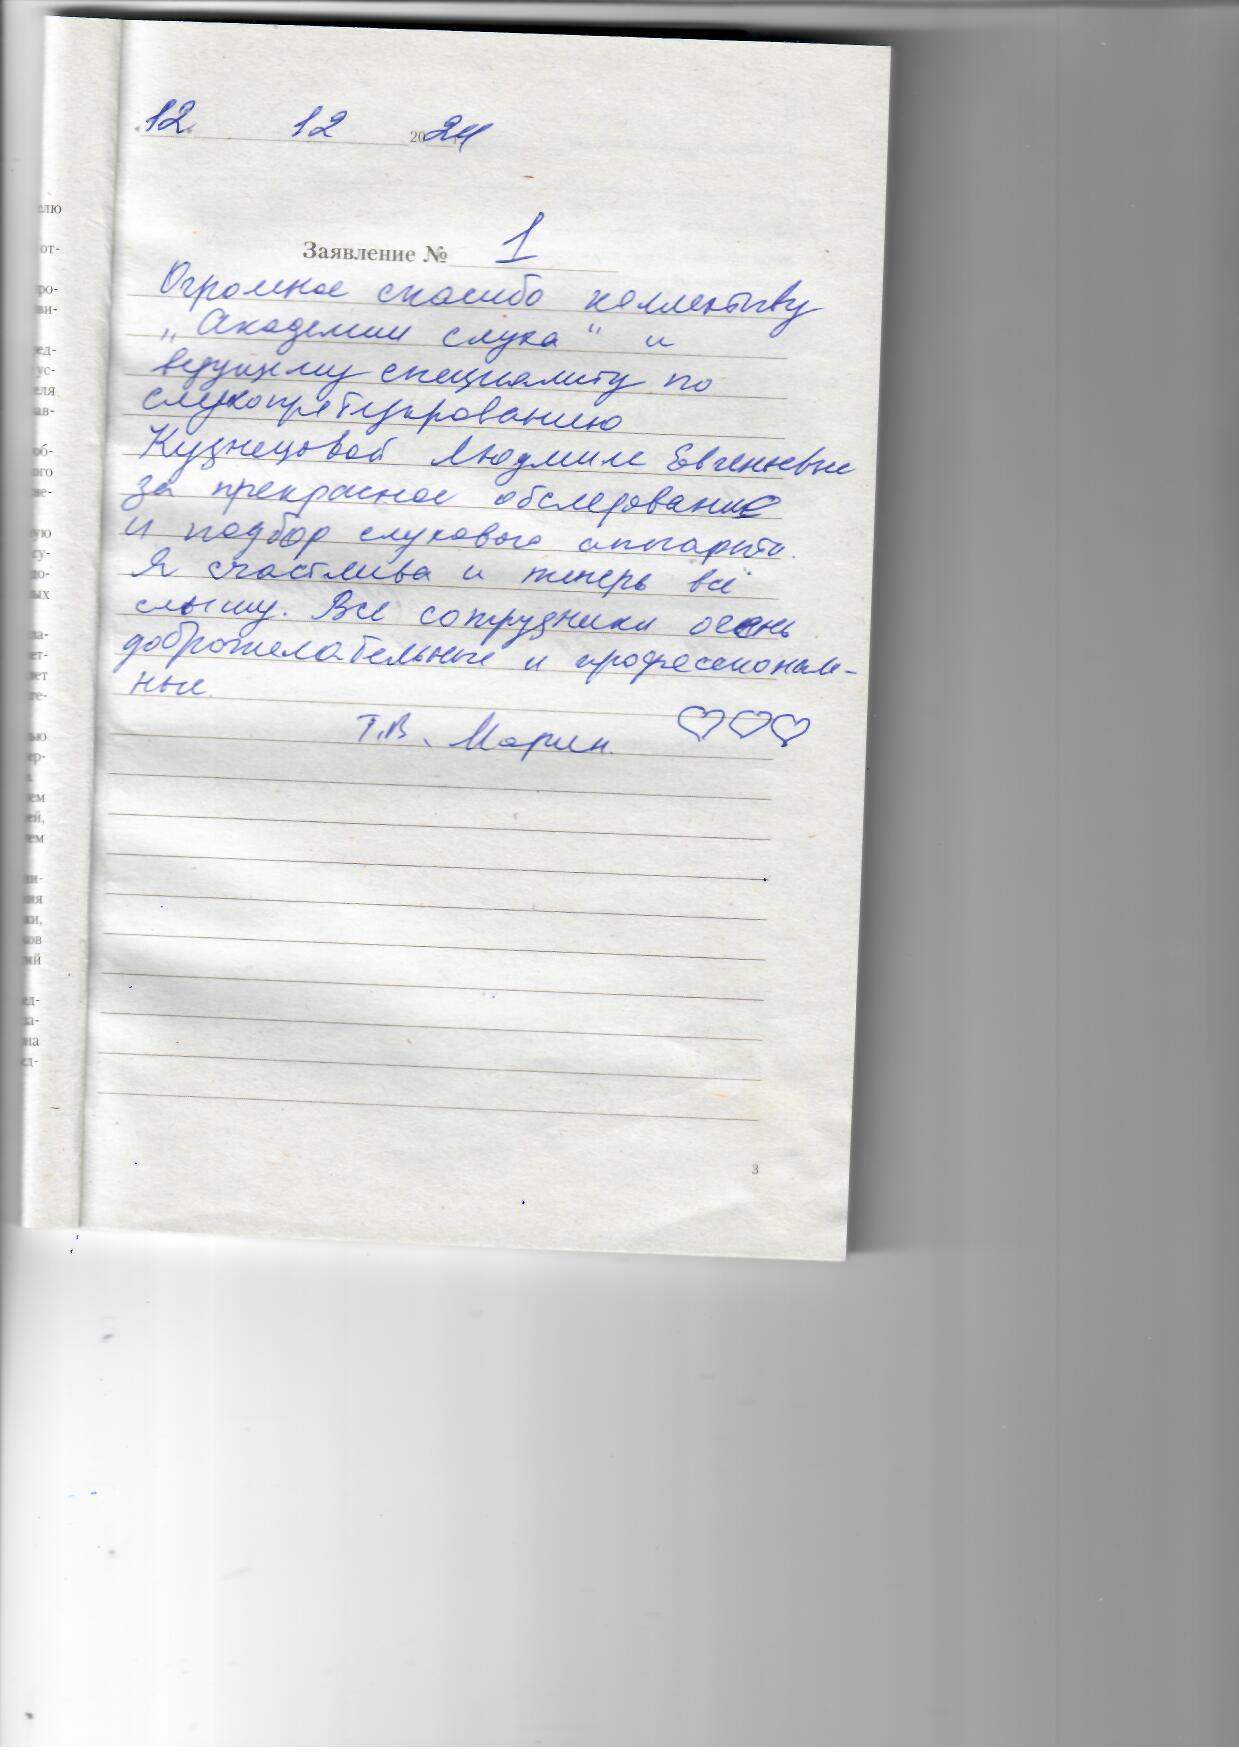 12. 12 2024
Заявление № 1
Огромное спасибо коллективу
„Академии слуха" и
ведущему специалисту по
слухопротезированию
Кузнецовой Людмиле Евгеньевне
за прекрасное обследование
и подбор слухового аппарата.
Я счастлива и теперь всё
слышу. Все сотрудники очень
доброжелательные и профессиональ-
ные.
Т.В. Марин.
3
елю
от-
ро-
ви-
ед-
ус-
еля
ав-
об-
ого
не-
ную
су-
до-
ных
ла-
ет-
ает
те-
ью
ер-
ем
ей,
ем
ни-
ия
ки,
ков
ий
ед-
за-
на
ед-